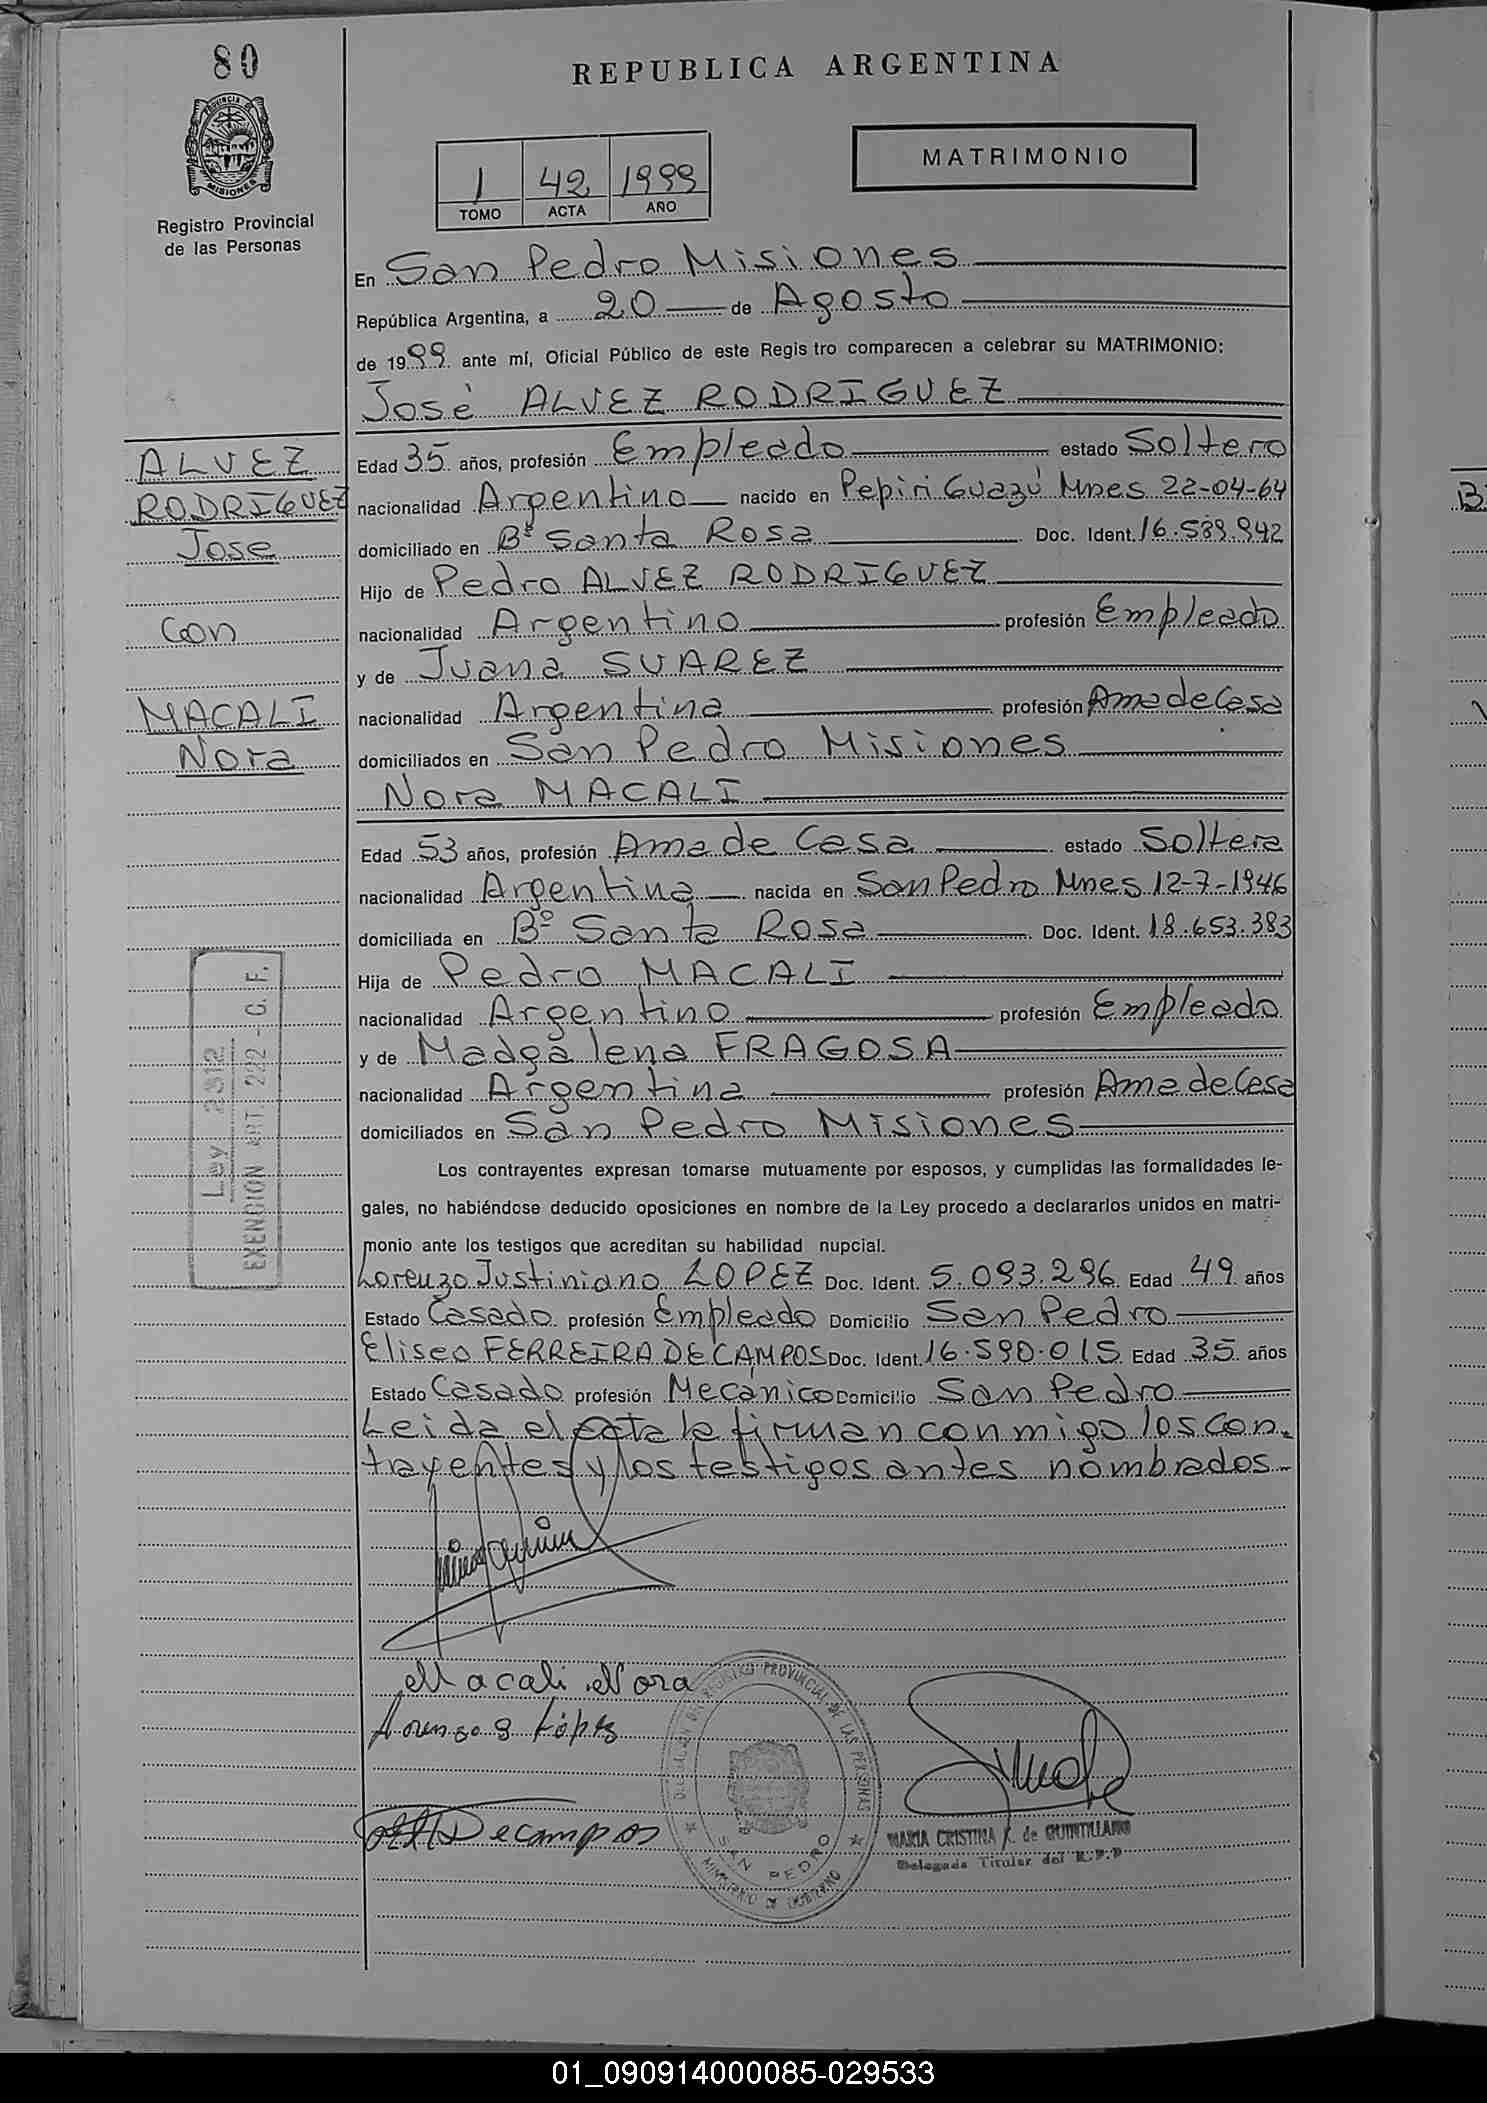 80
REPUBLICA ARGENTINA
PROVINCIA DE MISIONES
Registro Provincial
de las Personas
MATRIMONIO
1 42 1999
TOMO ACTA AÑO
En San Pedro Misiones
República Argentina, a 20 de Agosto
de 1999 ante mí, Oficial Público de este Registro comparecen a celebrar su MATRIMONIO:
José ALVEZ RODRIGUEZ
ALVEZ
RODRIGUEZ
Jose
Con
MACALI
Nora
Edad 35 años, profesión Empleado estado Soltero
nacionalidad Argentino nacido en Pepiri Guazú Mnes 22-04-64
domiciliado en Bº Santa Rosa Doc. Ident. 16.589.942
Hijo de Pedro ALVEZ RODRIGUEZ
nacionalidad Argentino profesión Empleado
y de Juana SUAREZ
nacionalidad Argentina profesión Ama de Casa
domiciliados en San Pedro Misiones
Nora MACALI
Edad 53 años, profesión Ama de Casa estado Soltera
nacionalidad Argentina nacida en San Pedro Mnes 12-7-1946
domiciliada en Bº Santa Rosa Doc. Ident. 18.653.383
Hija de Pedro MACALI
nacionalidad Argentino profesión Empleado
y de Madgalena FRAGOSA
nacionalidad Argentina profesión Ama de Casa
domiciliados en San Pedro Misiones
Ley 2312
EXENCION ART. 222 - C. F.
Los contrayentes expresan tomarse mutuamente por esposos, y cumplidas las formalidades le-
gales, no habiéndose deducido oposiciones en nombre de la Ley procedo a declararlos unidos en matri-
monio ante los testigos que acreditan su habilidad nupcial.
Lorenzo Justiniano LOPEZ Doc. Ident. 5.093.296 Edad 49 años
Estado Casado profesión Empleado Domicilio San Pedro
Eliseo FERREIRA DE CAMPOS Doc. Ident. 16.590.015 Edad 35 años
Estado Casado profesión Mecánico Domicilio San Pedro
Leida el acta la firman conmigo los con-
trayentes y los testigos antes nombrados
Macali Nora
Lorenzo J López
Decampos
DELEGACION DEL REGISTRO PROVINCIAL DE LAS PERSONAS
SAN PEDRO
MINISTERIO DE GOBIERNO
MARIA CRISTINA K. de QUINTILLANO
Delegada Titular del R.P.P
01_090914000085-029533